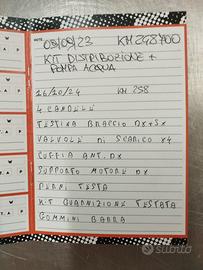 NOTE 09/08/23 KM 248700
KIT DISTRIBUZIONE +
POMPA ACQUA
16/10/24 KM 258
4 CANDELE
TESTINA BRACCIO DX+SX
VALVOLE DI SCARICO X4
CUFFIA ANT. DX
SUPPORTO MOTORE DX
PERNI TESTA
KIT GUARNIZIONE TESTATA
GOMMINI BARRA
Subito